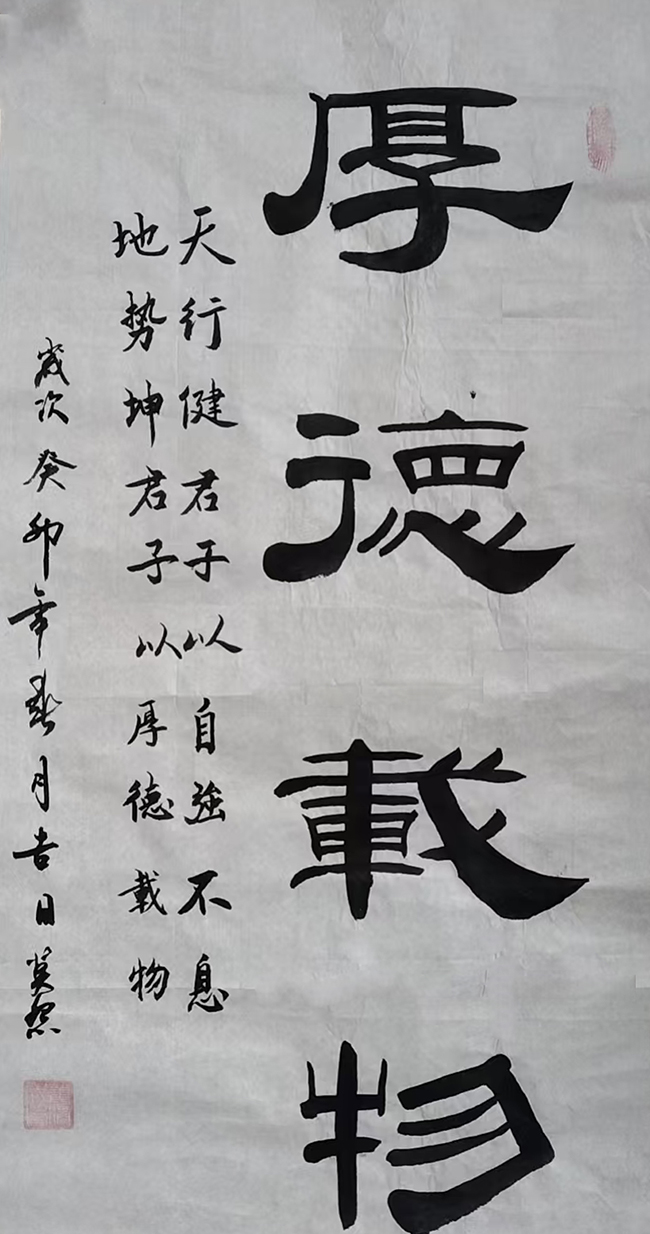 厚德載物
天行健君子以自強不息
地势坤君子以厚德載物
歲次癸卯年 月吉日